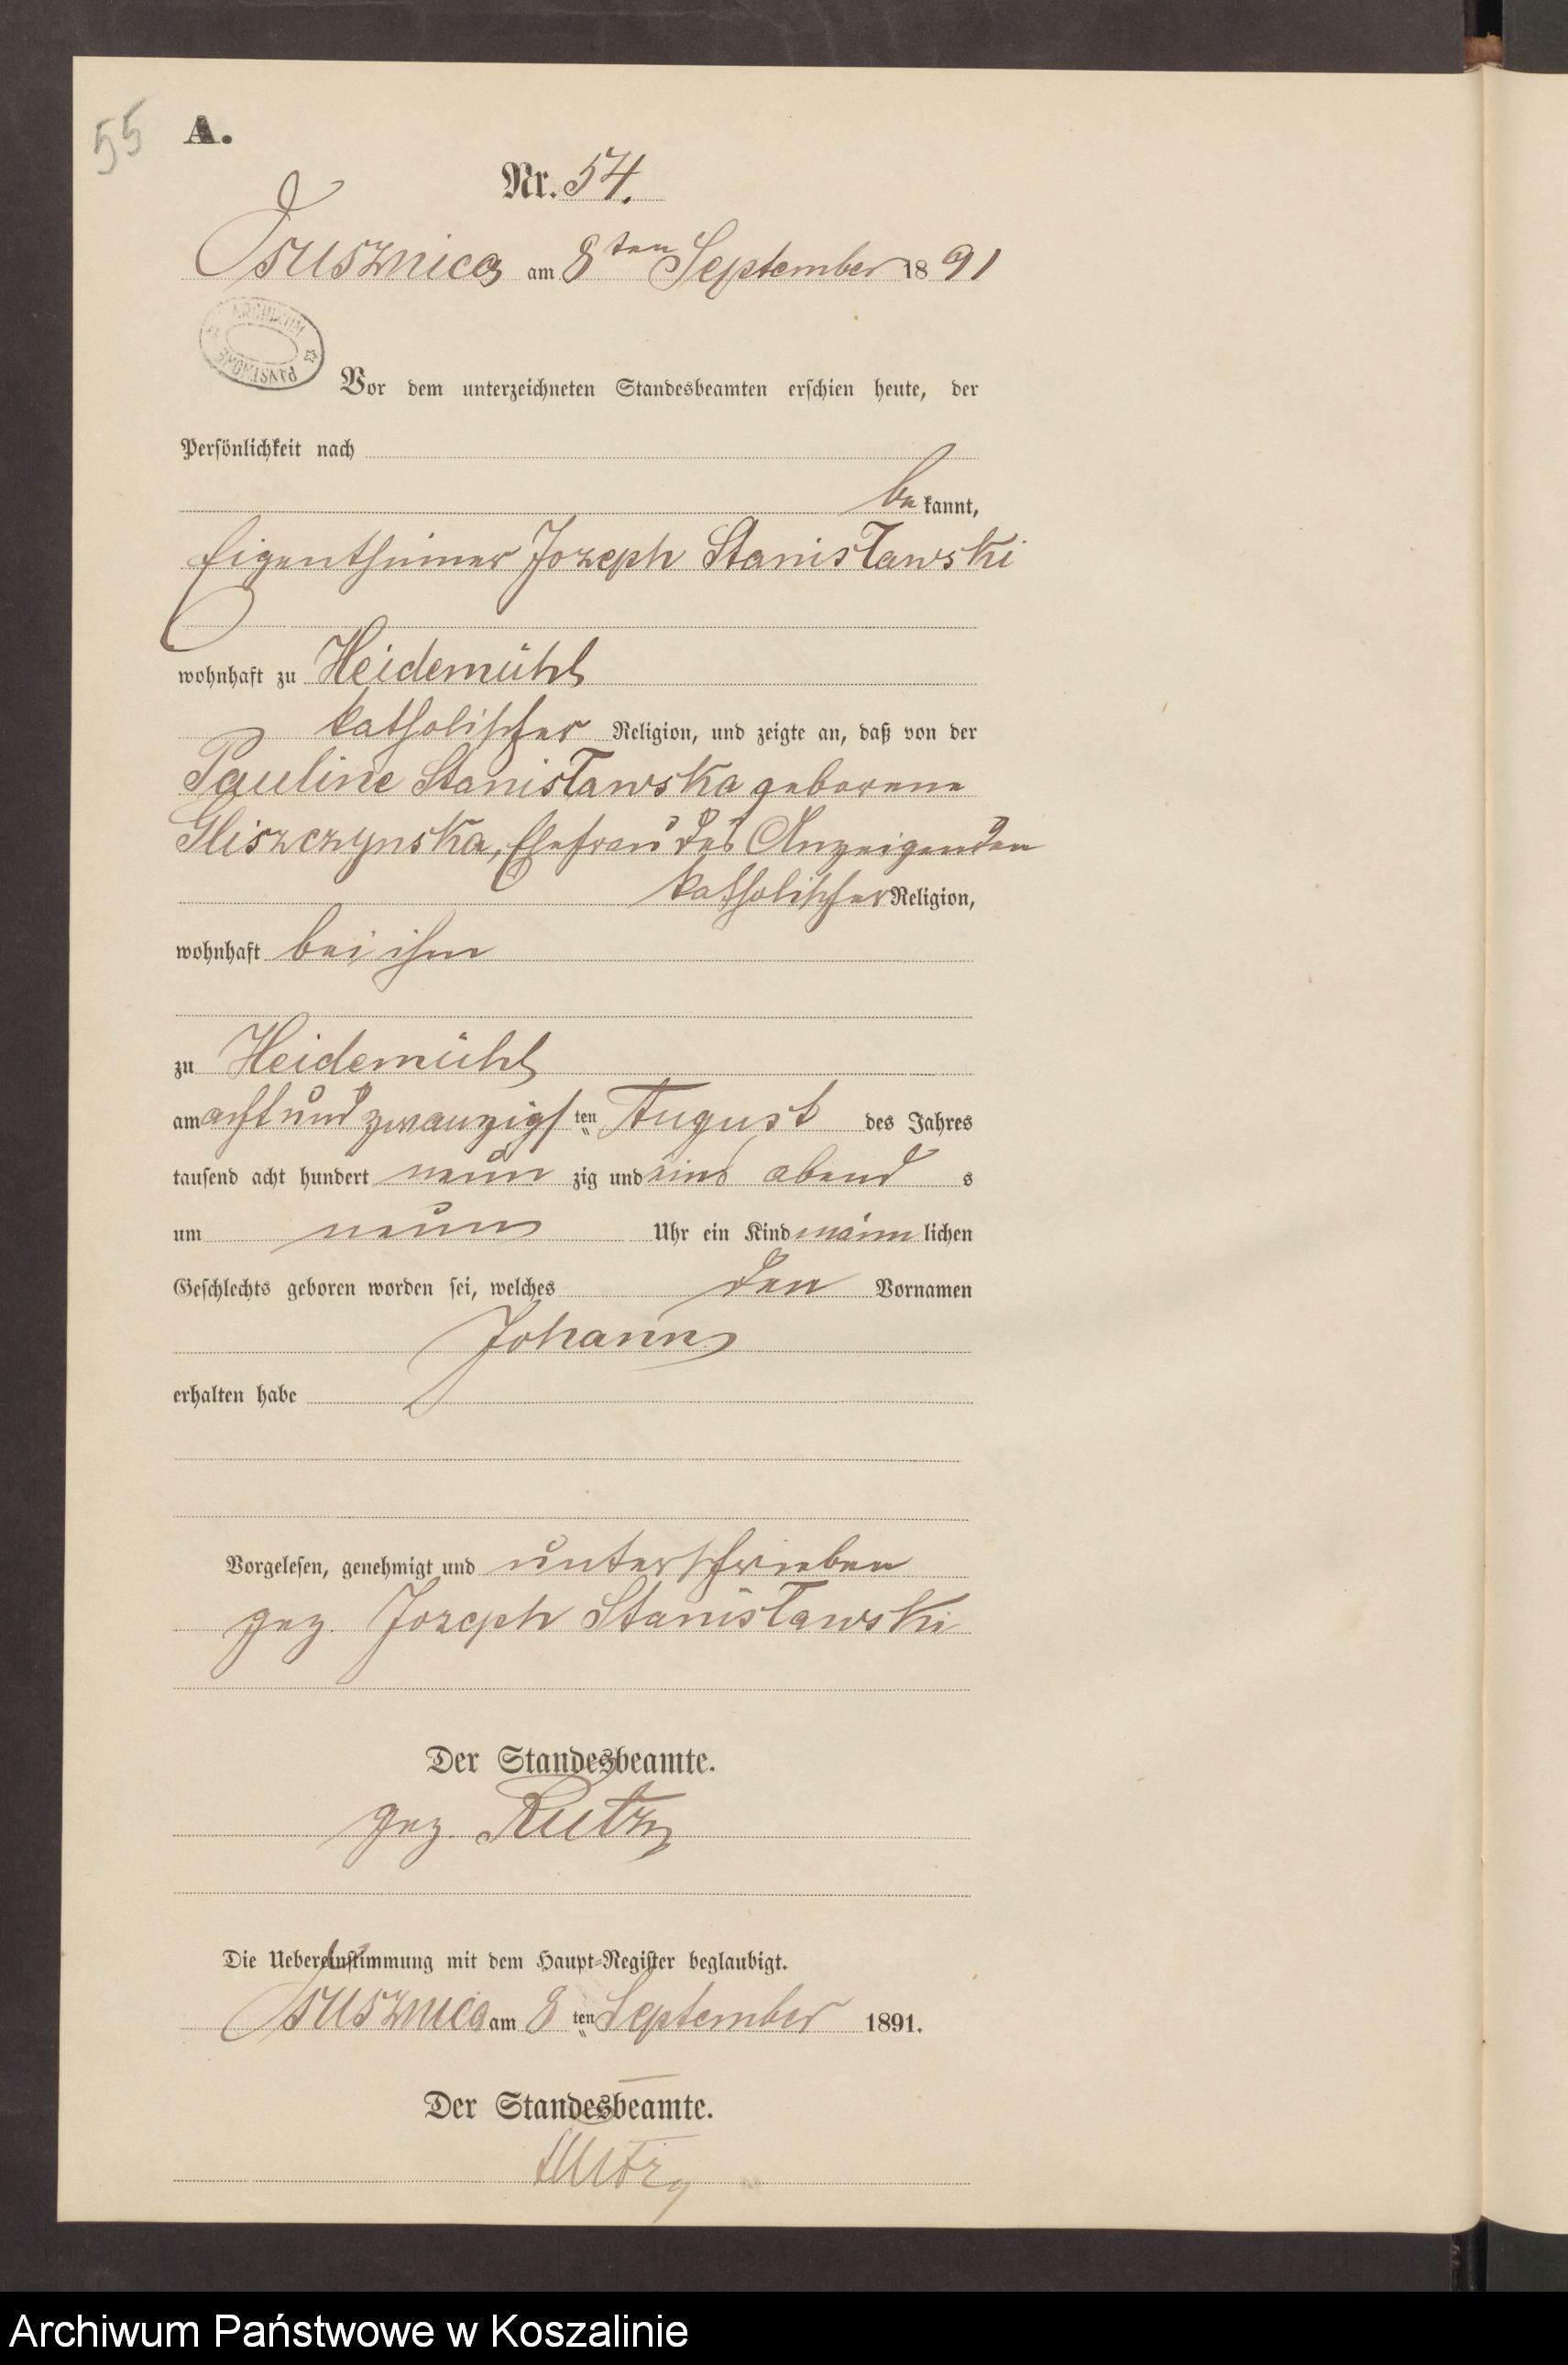 55
A.
Nr. 54.
Osusznica am 8ten September 1891
ARCHIWUM
PAŃSTWOWE
Vor dem unterzeichneten Standesbeamten erschien heute, der
Persönlichkeit nach
be kannt,
Eigenthümer Jozeph Stanisławski
wohnhaft zu Heidemühl
katholischer Religion, und zeigte an, daß von der
Pauline Stanisławska geborene
Gliszczynska, Ehefrau des Anzeigenden
katholischer Religion,
wohnhaft bei ihm
zu Heidemühl
am acht und zwanzigsten August des Jahres
tausend acht hundert neun zig und eins abend s
um neun Uhr ein Kind männ lichen
Geschlechts geboren worden sei, welches den Vornamen
Johann
erhalten habe
Vorgelesen, genehmigt und unterschrieben
gez. Jozeph Stanisławski
Der Standesbeamte.
gez. Rutz
Die Uebereinstimmung mit dem Haupt-Register beglaubigt.
Osusznica am 8 ten September 1891.
Der Standesbeamte.
Rutz
Archiwum Państwowe w Koszalinie